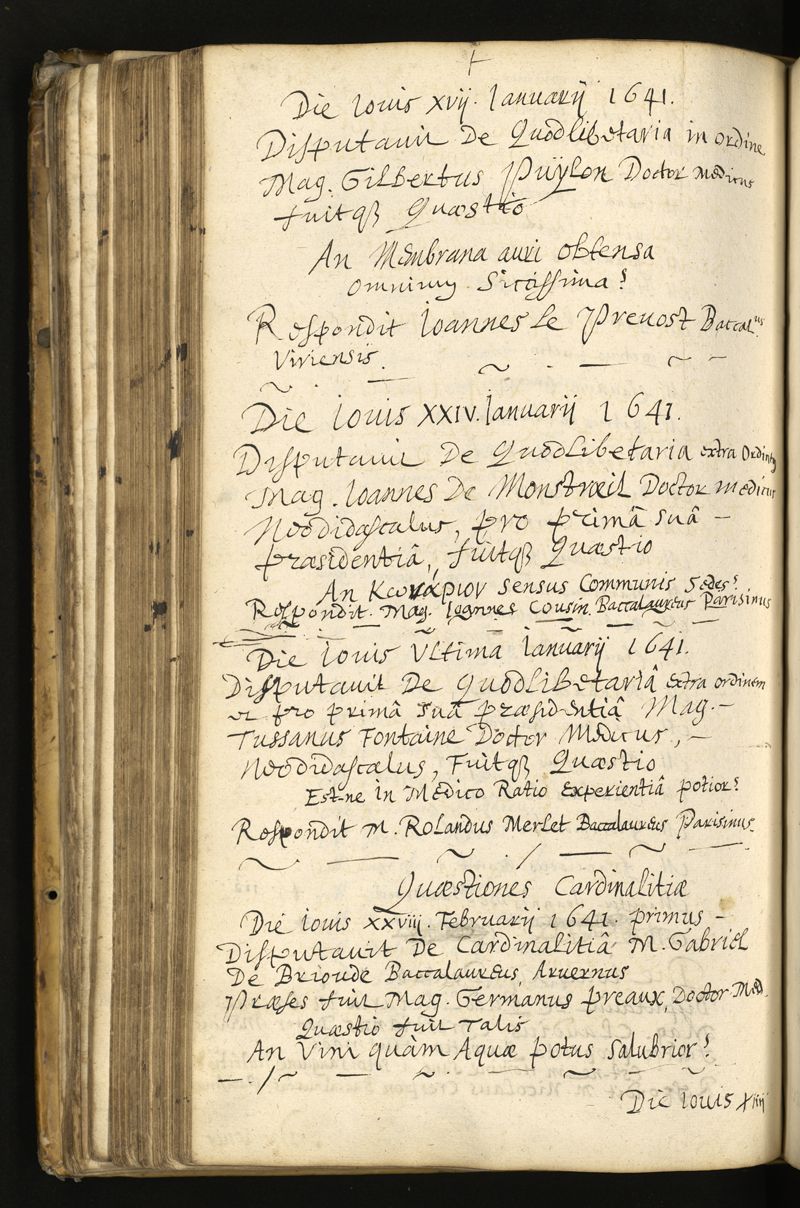 Die Iouis xvij. Ianuarij 1641.
Disputauit De Quodlibetaria in ordine
Mag. Gilbertus Puÿlon Doctor medicus
fuitqꝫ Quæstio
An Membrana auri obtensa
omnium Siccissima?
Respondit Ioannes Le Preuost Baccal.us
Viriensis.
Die Iouis XXIV. Ianuarij 1641.
Disputauit De Quodlibetaria extra Ordinem
Mag. Ioannes De Monstrœil Doctor medicus
Neodidascalus, pro primâ suâ –
præsidentiâ, fuitqꝫ Quæstio
An Κωνάριον sensus Communis Sedes?
Respondit. Mag. Ioannes Cousin. Baccalaureus Parisinus
Die Iouis Vltima Ianuarij 1641.
Disputauit De Quodlibetariâ extra ordinem
et pro primâ suâ præsidentiâ Mag. –
Tussanus Fontaine Doctor Medicus, –
Neodidascalus, Fuitqꝫ Quæstio
Est-ne in Medico Ratio experientiâ potior?
Respondit M. Rolandus Merlet Baccalaureus Parisinus.
Quæstiones Cardinalitiæ
Die Iouis xxviij. Februarij 1641. primus –
Disputauit De Cardinalitiâ M. Gabriel
De Brioude Baccalaureus, Aruernus
Præses fuit Mag. Germanus preaux, Doctor Med.
Quæstio fuit Talis
An Vini quàm Aquæ potus salubrior?
Die Iouis